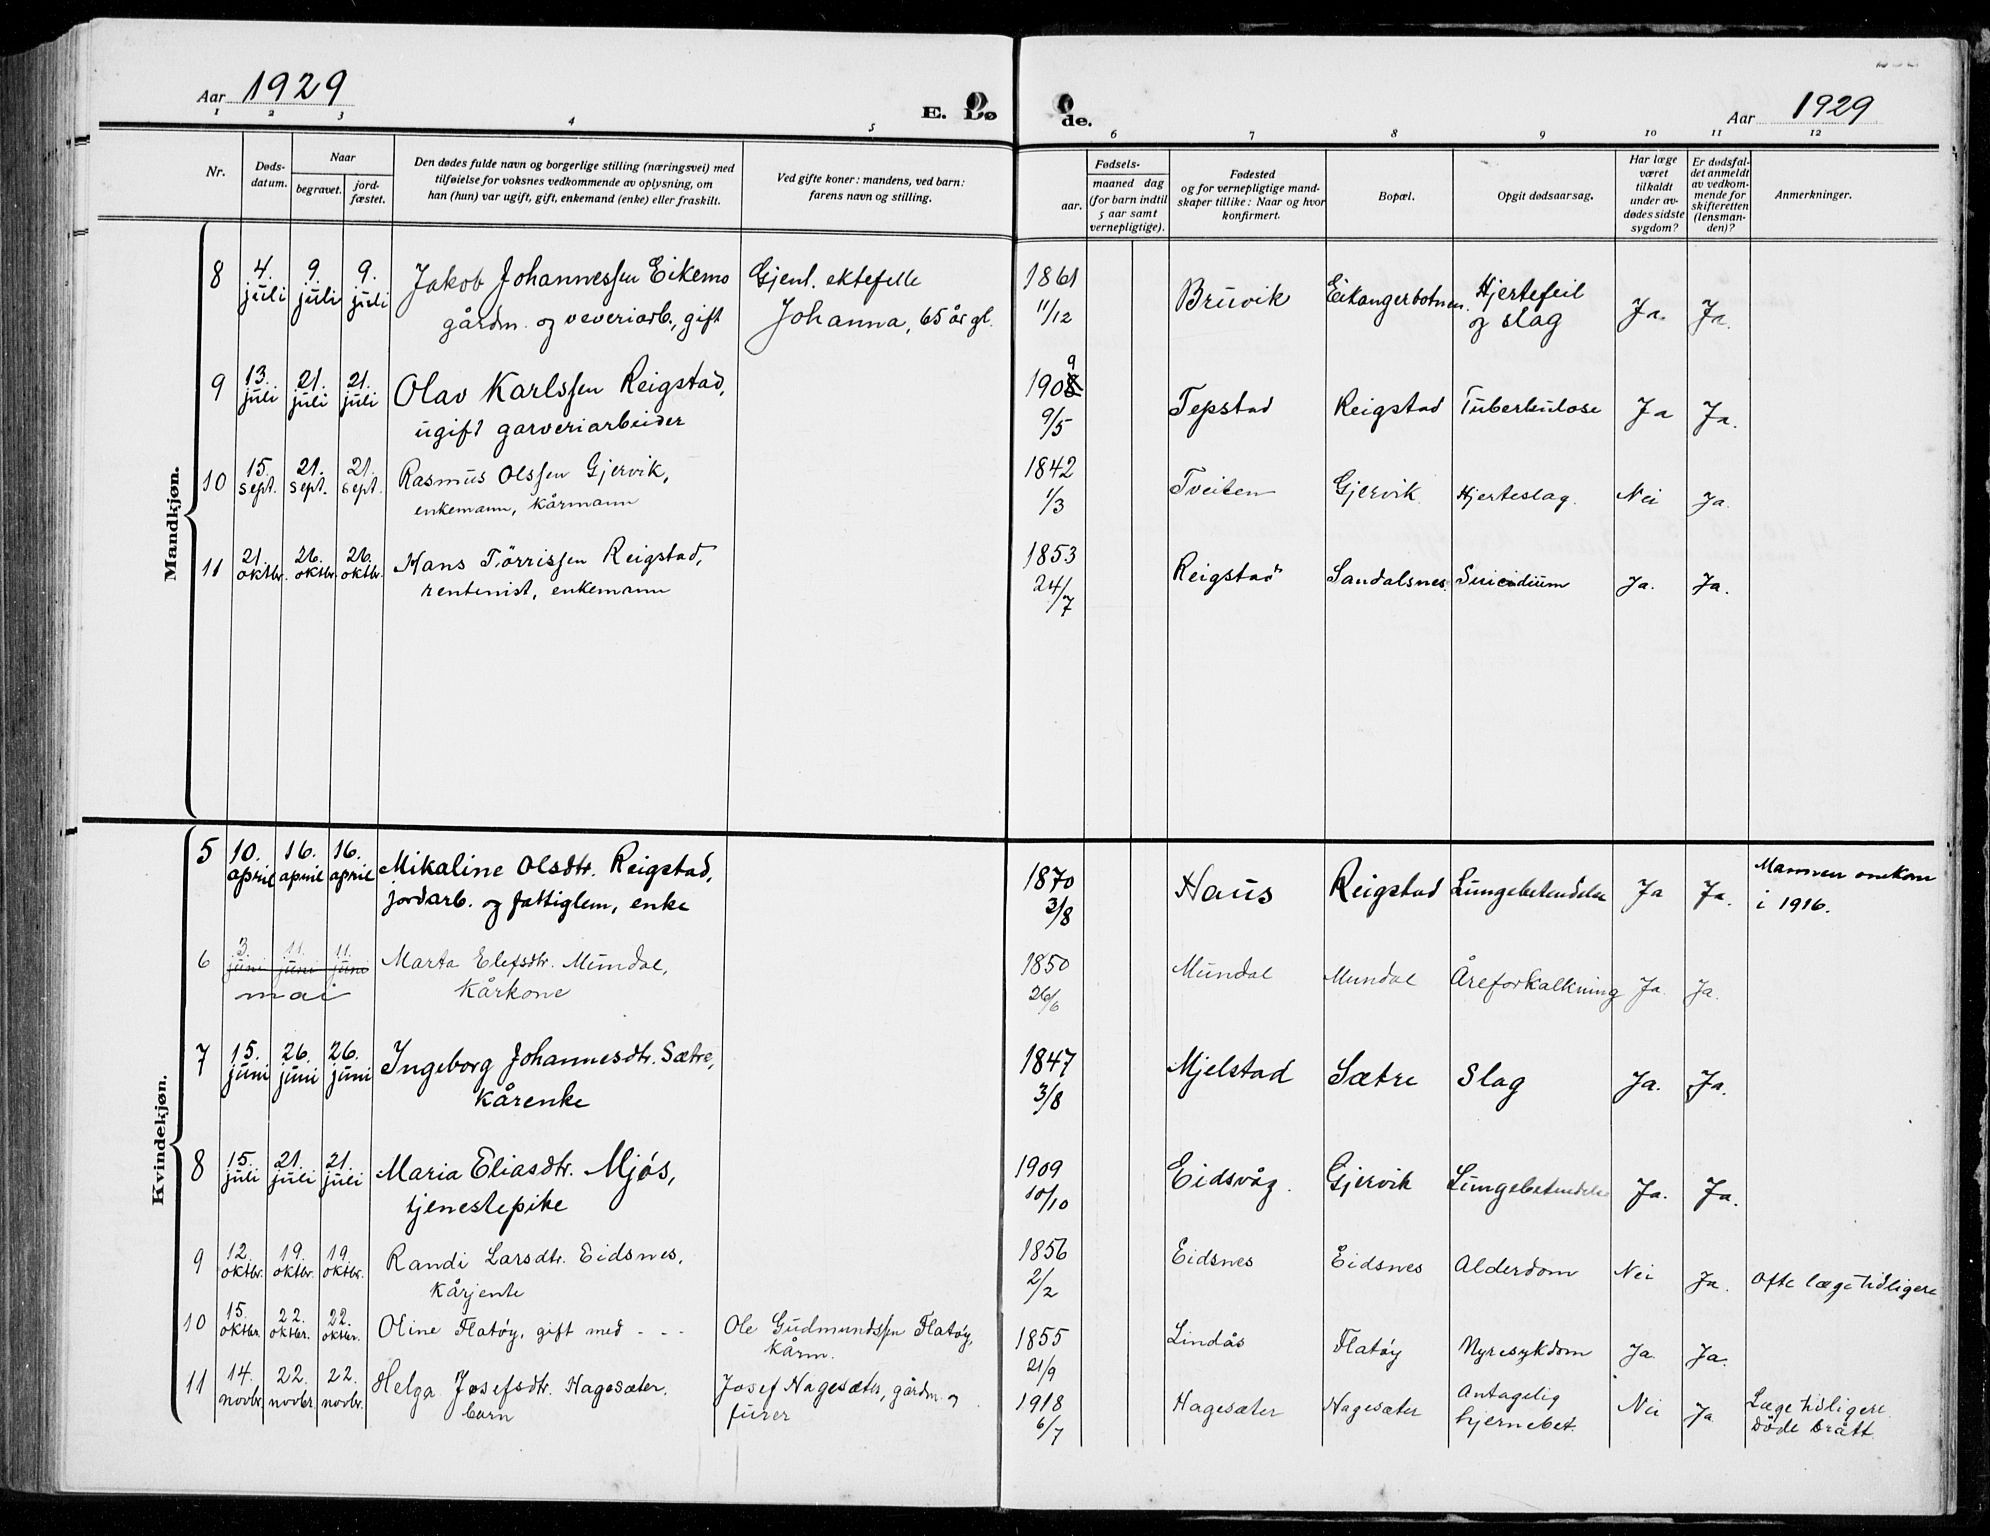 Aar 1929
E. Dø
de.
Aar 1929
1 2 3 4 5 6 7 8 9 10 11 12
Nr.
Døds-
datum.
Naar
begravet.
jord-
fæstet.
Den dødes fulde navn og borgerlige stilling (næringsvei) med
tilføielse for voksnes vedkommende av oplysning, om
han (hun) var ugift, gift, enkemand (enke) eller fraskilt.
Ved gifte koner: mandens, ved barn:
farens navn og stilling.
Fødsels-
aar.
maaned dag
(for barn indtil
5 aar samt
vernepligtige).
Fødested
og for vernepligtige mand-
skaper tillike: Naar og hvor
konfirmert.
Bopæl.
Opgit dødsaarsag.
Har læge
været
tilkaldt
under av-
dødes sidste
sygdom?
Er dødsfal-
det anmeldt
av vedkom-
mende for
skifteretten
(lensman-
den)?
Anmerkninger.
Mandkjøn.
8 4. juli 9. juli 9. juli Jakob Johannessen Eikemo Gjenl. ektefelle 1861 Bruvik Eikangerbotnen. Hjertefeil Ja. Ja.
gårdm. og veveriarb., gift Johanna, 65 år gl. 11/12 og slag
9 13. juli 21. juli 21. juli Olav Karlssen Reigstad, 1909 Tepstad Reigstad Tuberkulose Ja Ja.
ugift garveriarbeider 9/5
10 15. sept. 21. sept. 21. sept. Rasmus Olssen Gjervik, 1842 Tveiten Gjervik Hjerteslag. Nei Ja.
enkemann, kårmann 1/3
11 21. oktbr. 26. oktbr. 26. oktbr. Hans Tørrissen Reigstad, 1853 Reigstad Sandalsnes. Suicidium Ja. Ja.
rentenist, enkemann 24/7
Kvindekjøn.
5 10. april 16. april 16. april Mikaline Olsdtr. Reigstad, 1870 Haus Reigstad Lungebetendelse Ja Ja. Mannen omkom
jordarb. og fattiglem, enke 3/8 i 1916.
6 3. juni 11. juni 11. juni Marta Elefsdtr. Mundal, 1850 Mundal Mundal Åreforkalkning Ja. Ja.
mai kårkone 26/6
7 15. juni 26. juni 26. juni Ingeborg Johannesdtr. Sætre, 1847 Mjelstad Sætre Slag Ja. Ja.
kårenke 3/8
8 15. juli 21. juli 21. juli Maria Eliasdtr. Mjøs, 1909 Eidsvåg. Gjervik Lungebetendelse Ja. Ja.
tjenestepike 10/10
9 12. oktbr. 19. oktbr. 19. oktbr. Randi Larsdtr. Eidsnes, 1856 Eidsnes Eidsnes Alderdom Nei Ja. Ofte læge tidligere
kårjente 2/2
10 15. oktbr. 22. oktbr. 22. oktbr. Oline Flatøy, gift med - - - Ole Gudmundssen Flatøy, 1855 Lindås Flatøy Nyresykdom Ja. Ja.
kårm. 21/9
11 14. novbr. 22. novbr. 22. novbr. Helga Josefsdtr. Hagesæter, Josef Hagesæter, gårdm. og 1918 Hagesæter Hagesæter Antagelig Nei Ja Læge tidligere.
barn furer 6/7 hjernebet. Døde brått.